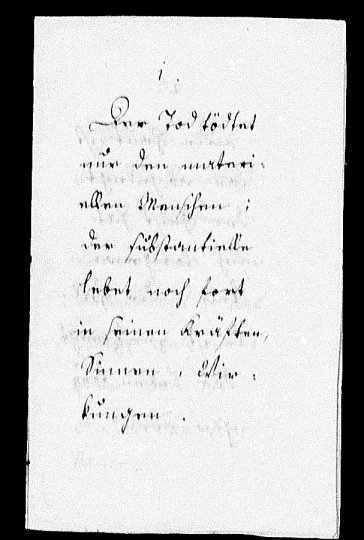 1.
Der Tod tödtet
nur den materi:
ellen Menschen ;
der substantielle
lebet noch fort
in seinen Kräften,
Sinnen , Wir :
kungen .